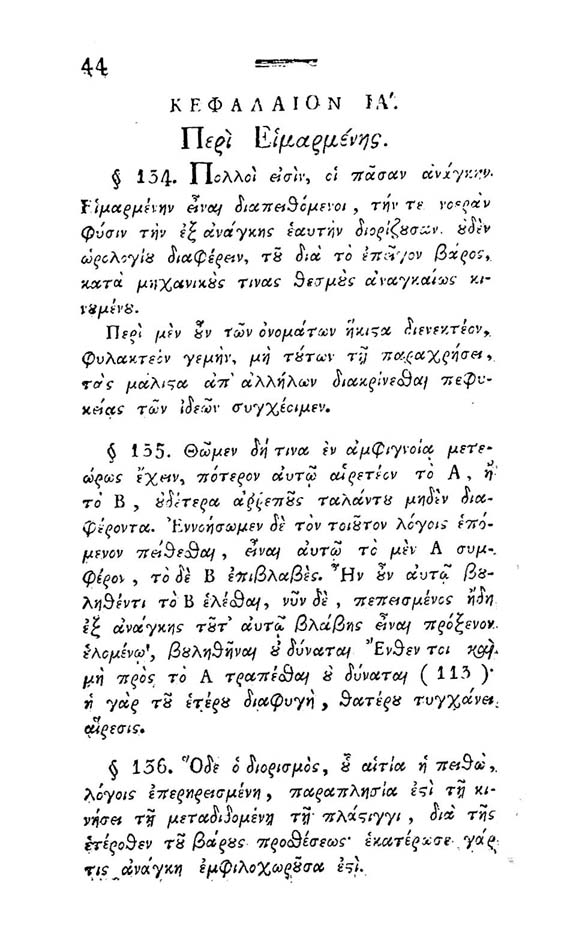 44
ΚΕΦΑΛΑΙΟΝ ΙΑ'.
Περὶ Εἱμαρμένης.
§ 134. Πολλοὶ εἰσὶν, οἱ πᾶσαν ἀνάγκην
Εἱμαρμένην εἶναι διαπειθόμενοι, τήν τε νοερὰν
φύσιν τὴν ἐξ ἀνάγκης ἑαυτὴν διορίζουσαν οὐδὲν
ὡρολογίου διαφέρειν, τοῦ διὰ τὸ ἐπεῖγον βάρος,
κατὰ μηχανικούς τινας θεσμοὺς ἀναγκαίως κι-
νουμένου.
Περὶ μὲν οὖν τῶν ὀνομάτων ἥκιστα διενεκτέον,
φυλακτέον γεμὴν, μὴ τούτων τῇ παραχρήσει,
τὰς μάλιστα ἀπ' ἀλλήλων διακρίνεσθαι πεφυ-
κείας τῶν ἰδεῶν συγχέοιμεν.
§ 135. Θῶμεν δή τινα ἐν ἀμφιγνοίᾳ μετε-
ώρως ἔχειν, πότερον αὐτῷ αἱρετέον τὸ Α, ἢ
τὸ Β, οὐδέτερα ἀῤῥεποῦς ταλάντου μηδὲν δια-
φέροντα. Ἐννοήσωμεν δὲ τὸν τοιοῦτον λόγοις ἑπό-
μενον πείθεσθαι, εἶναι αὐτῷ τὸ μὲν Α συμ-
φέρον, τὸ δὲ Β ἐπιβλαβές. Ἦν οὖν αὐτῷ βου-
ληθέντι τὸ Β ἑλέσθαι, νῦν δὲ, πεπεισμένος ἤδη
ἐξ ἀνάγκης τοῦτ' αὐτῷ βλάβης εἶναι πρόξενον
ἑλομένῳ, βουληθῆναι οὐ δύναται Ἔνθεν τοι καὶ
μὴ πρὸς τὸ Α τραπέσθαι οὐ δύναται (113)·
ἡ γὰρ τοῦ ἑτέρου διαφυγὴ, θατέρου τυγχάνει
αἵρεσις.
§ 136. Ὅδε ὁ διορισμὸς, οὗ αἰτία ἡ πειθὼ,
λόγοις ἐπερηρεισμένη, παραπλησία ἐστὶ τῇ κι-
νήσει τῇ μεταδιδομένῃ τῇ πλάστιγγι, διὰ τῆς
ἑτέροθεν τοῦ βάρους προσθέσεως· ἑκατέρωσε γάρ
τις ἀνάγκη ἐμφιλοχωροῦσα ἐστί.